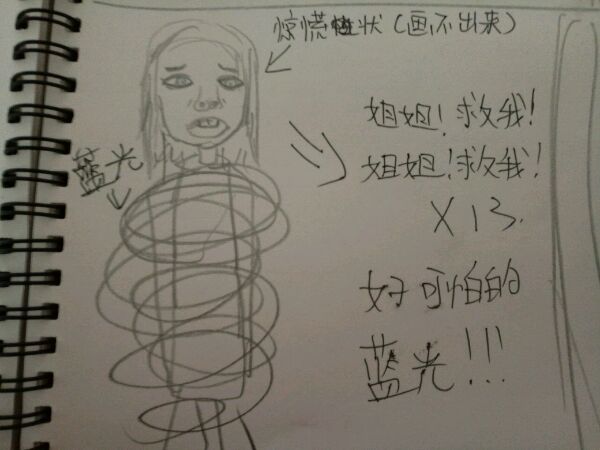 惊慌状（画不出来）
姐姐！救我！
姐姐！救我！
X 13.
蓝光
好可怕的
蓝光！！！